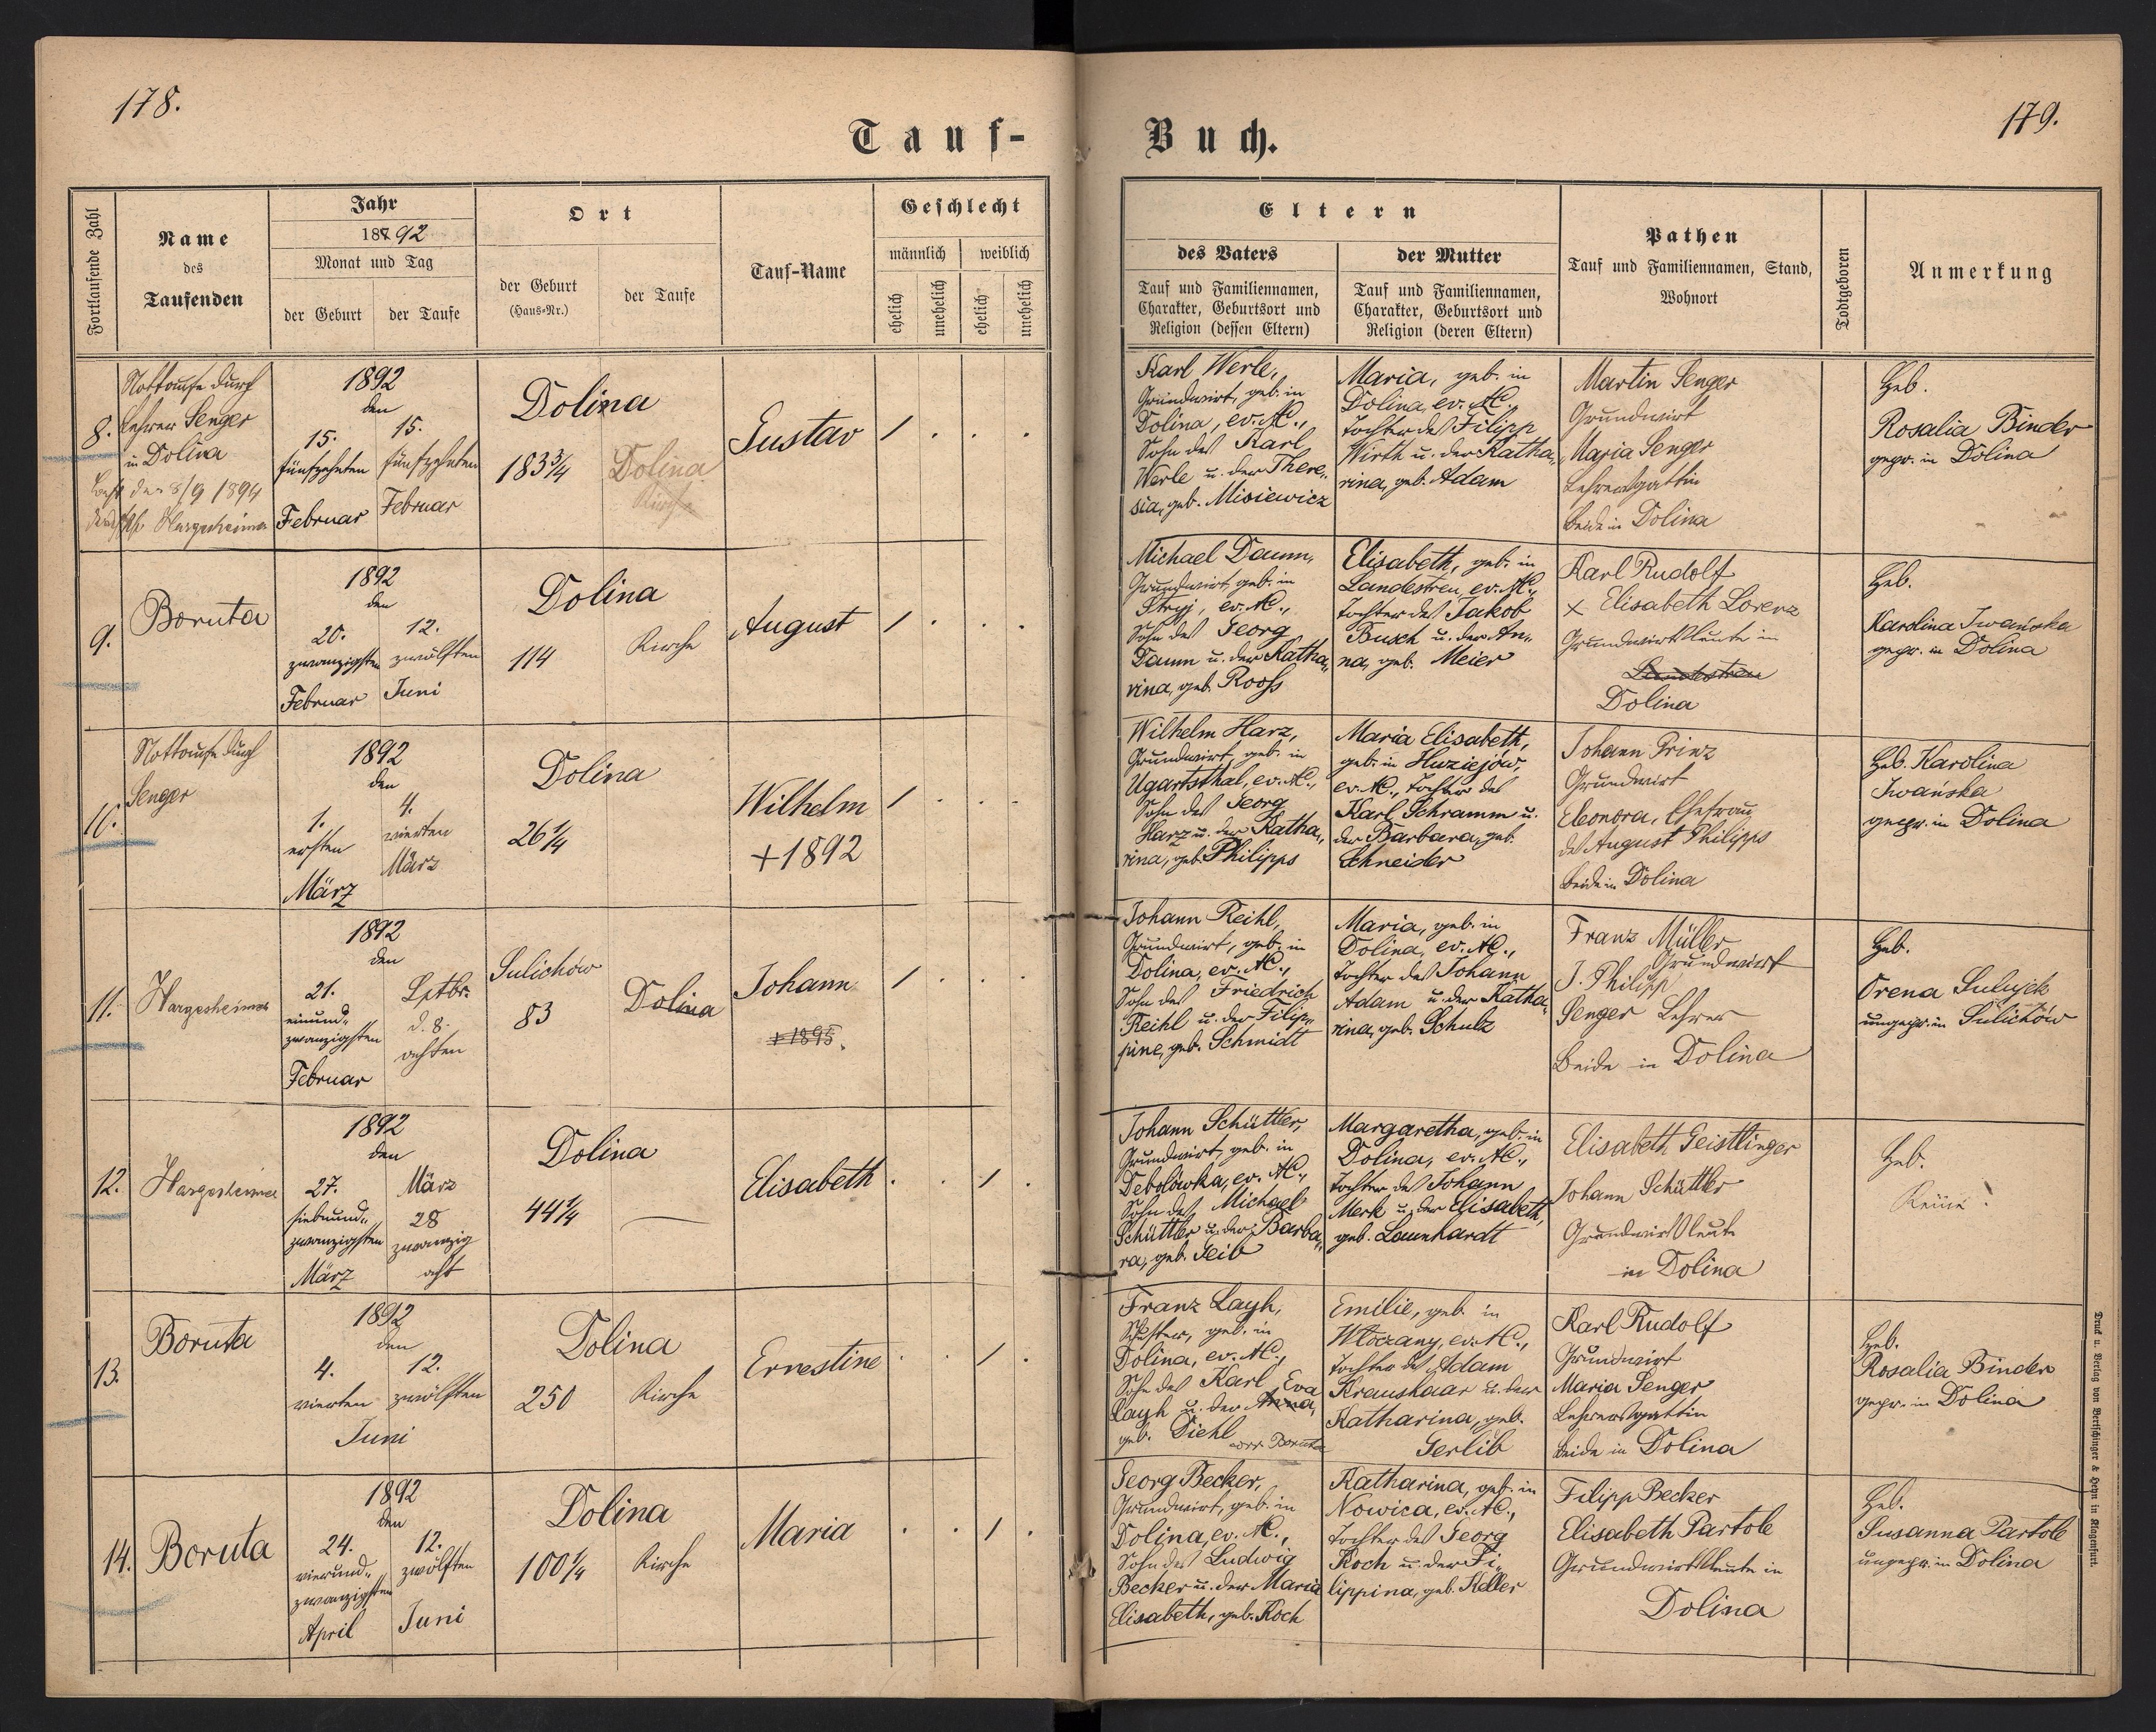 178.
Tauf-
Fortlaufende Zahl
Name
des
Taufenden
Jahr
1892
Monat und Tag
der Geburt
der Taufe
Ort
der Geburt
(Haus-Nr.)
der Taufe
Tauf-Name
Geschlecht
männlich
weiblich
ehelich
unehelich
ehelich
unehelich
8.
Nottaufe durch
Lehrer Senger
in Dolina
den 8/9 1894
Hargesheimer
1892
den
15.
fünfzehnten
Februar
15.
fünfzehnten
Februar
Dolina
183 3/4
Dolina
Kirche
Gustav
1 . . .
9.
Boruta
1892
den
20.
zwanzigsten
Februar
12.
zwölften
Juni
Dolina
114
Kirche
August
1 . . .
10.
Nottaufe durch
Senger
1892
den
1.
ersten
März
4.
vierten
März
Dolina
26 1/4
Wilhelm
+1892
1 . . .
11.
Hargesheimer
1892
den
21.
einund-
zwanzigsten
Februar
Sptbr.
d. 8.
achten
Sulichów
83
Dolina
Johann
+1895.
1 . . .
12.
Hargesheimer
1892
den
27.
siebenund-
zwanzigsten
März
März
28
zwanzig
acht
Dolina
44 1/4
—
Elisabeth
. . 1 .
13.
Boruta
1892
den
4.
vierten
12.
zwölften
Juni
Dolina
250
Kirche
Ernestine
. . 1 .
14.
Boruta
1892
den
24.
vierund-
zwanzigsten
April
12.
zwölften
Juni
Dolina
100 1/4
Kirche
Maria
. . 1 .
179.
Buch.
Eltern
des Vaters
Tauf und Familiennamen,
Charakter, Geburtsort und
Religion (dessen Eltern)
der Mutter
Tauf und Familiennamen,
Charakter, Geburtsort und
Religion (deren Eltern)
Pathen
Tauf und Familiennamen, Stand,
Wohnort
Todtgeboren
Anmerkung
Karl Werle,
Grundwirt, geb. in
Dolina, ev. AC.,
Sohn des Karl
Werle u. der There-
sia, geb. Misiewicz
Maria, geb. in
Dolina, ev. AC.
Tochter des Filipp
Wirth u. der Katha-
rina, geb. Adam
Martin Senger
Grundwirt
Maria Senger
Lehrersgattin
beide in Dolina
Heb.
Rosalia Binder
gepr. in Dolina
Michael Daum,
Grundwirt, geb. in
Stryj, ev. AC.,
Sohn des Georg
Daum u. der Katha-
rina, geb. Rooß
Elisabeth, geb. in
Landestreu, ev. AC.,
Tochter des Jakob
Busch u. der An-
na, geb. Meier
Karl Rudolf
x Elisabeth Lorenz
Grundwirtsleute in
Landestreu
Dolina
Heb.
Karolina Iwańska
gepr. in Dolina
Wilhelm Harz,
Grundwirt, geb. in
Ugartsthal, ev. AC.,
Sohn des Georg
Harz u. der Katha-
rina, geb. Philipps
Maria Elisabeth,
geb. in Huziejów,
ev. AC., Tochter des
Karl Schramm u.
der Barbara, geb.
Schneider
Johann Prinz
Grundwirt
Eleonora, Ehefrau
des August Philipps
beide in Dolina
Heb. Karolina
Iwańska
gepr. in Dolina
Johann Reihl,
Grundwirt, geb. in
Dolina, ev. AC.,
Sohn des Friedrich
Reihl u. der Filip-
pine, geb. Schmidt
Maria, geb. in
Dolina, ev. AC.,
Tochter des Johann
Adam u. der Katha-
rina, geb. Schulz
Franz Müller
Grundwirt
J. Philipp
Senger Lehrer
Beide in Dolina
Heb.
Orena Sulyjek
ungepr. in Sulichów
Johann Schüttler,
Grundwirt, geb. in
Debolówka, ev. AC.,
Sohn des Michael
Schüttler u. der Barba-
ra, geb. Geib
Margaretha, geb. in
Dolina, ev. AC.,
Tochter des Johann
Merk u. der Elisabeth,
geb. Launhardt
Elisabeth Geistlinger
Johann Schüttler
Grundwirtsleute
in Dolina
Heb.
Keine!
Franz Layh,
Schuster, geb. in
Dolina, ev. AC.,
Sohn des Karl
Layh u. der Anna, Eva
geb. Diehl
corr. Boruta
Emilie, geb. in
Wtoczany, ev. AC.,
Tochter des Adam
Kraushaar u. der
Katharina, geb.
Gerlib
Karl Rudolf
Grundwirt
Maria Senger
Lehrersgattin
beide in Dolina
Heb.
Rosalia Binder
gepr. in Dolina
Georg Becker,
Grundwirt, geb. in
Dolina, ev. AC.,
Sohn des Ludwig
Becker u. der Maria
Elisabeth, geb. Koch
Katharina, geb. in
Nowica, ev. AC.,
Tochter des Georg
Koch u. der Fi-
lippina, geb. Keller
Filipp Becker
Elisabeth Partole
Grundwirtsleute in
Dolina
Heb.
Susanna Partole
ungepr. in Dolina
Druck u. Verlag von Bertschinger & Heyn in Klagenfurt.